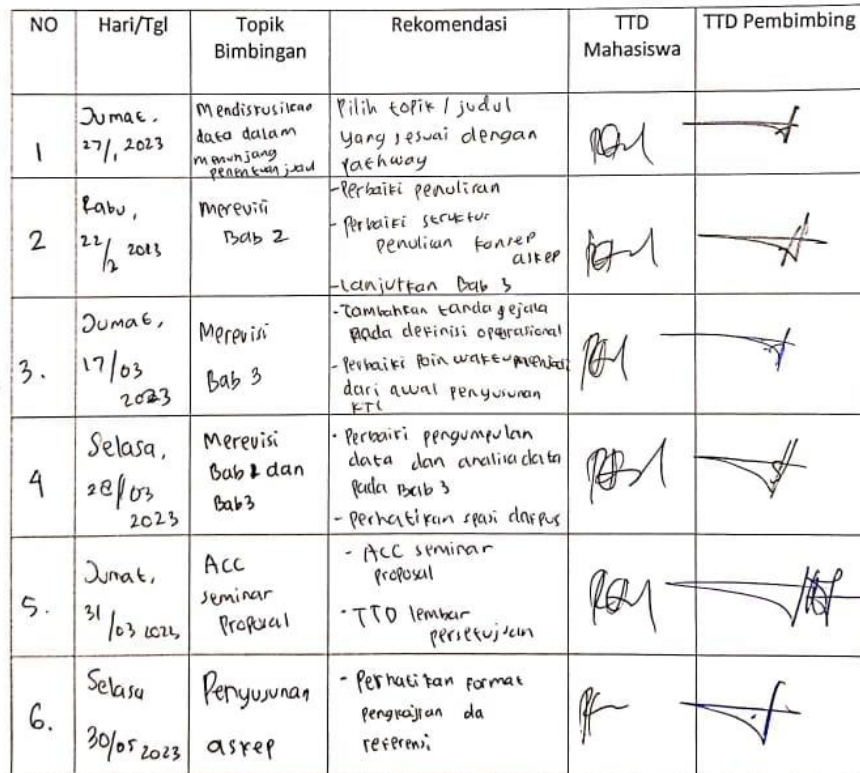 NO Hari/Tgl Topik Bimbingan Rekomendasi TTD Mahasiswa TTD Pembimbing
1
Jumat,
27/1 2023
Mendiskusikan
data dalam
menunjang
penentuan judul
Pilih topik / judul
yang sesuai dengan
pathway
2
Rabu,
22/2 2023
Merevisi
Bab 2
- Perbaiki penulisan
- Perbaiki struktur
penulisan konsep
askep
- Lanjutkan Bab 3
3.
Jumat,
17/03
2023
Merevisi
Bab 3
- Tambahkan tanda gejala
pada definisi operasional
- Perbaiki poin waktu menjadi
dari awal penyusunan
KTI
4
Selasa,
28/03
2023
Merevisi
Bab dan
Bab 3
- Perbaiki pengumpulan
data dan analisa data
pada Bab 3
- Perhatikan spasi dafpus
5.
Jumat,
31
/03
ACC
seminar
Proposal
- ACC seminar
proposal
- TTD lembar
persetujuan
6.
Selasa
30/05 2023
Penyusunan
askep
- Perhatikan format
pengkajian da
referensi